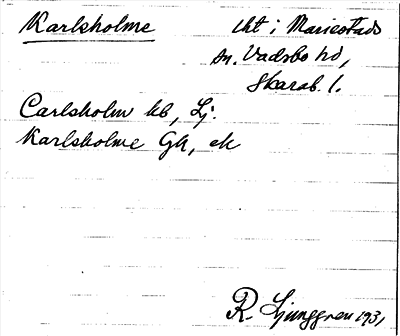 Karlsholme lht i Mariestads
sn. Vadsbo hd,
Skarab. l.
Carlsholm kb, Lj.
Karlsholme Gk, ek
R. Ljunggren 1931